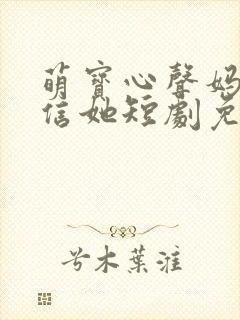 萌寶心聲媽
信她短劇免
兮木葉淮